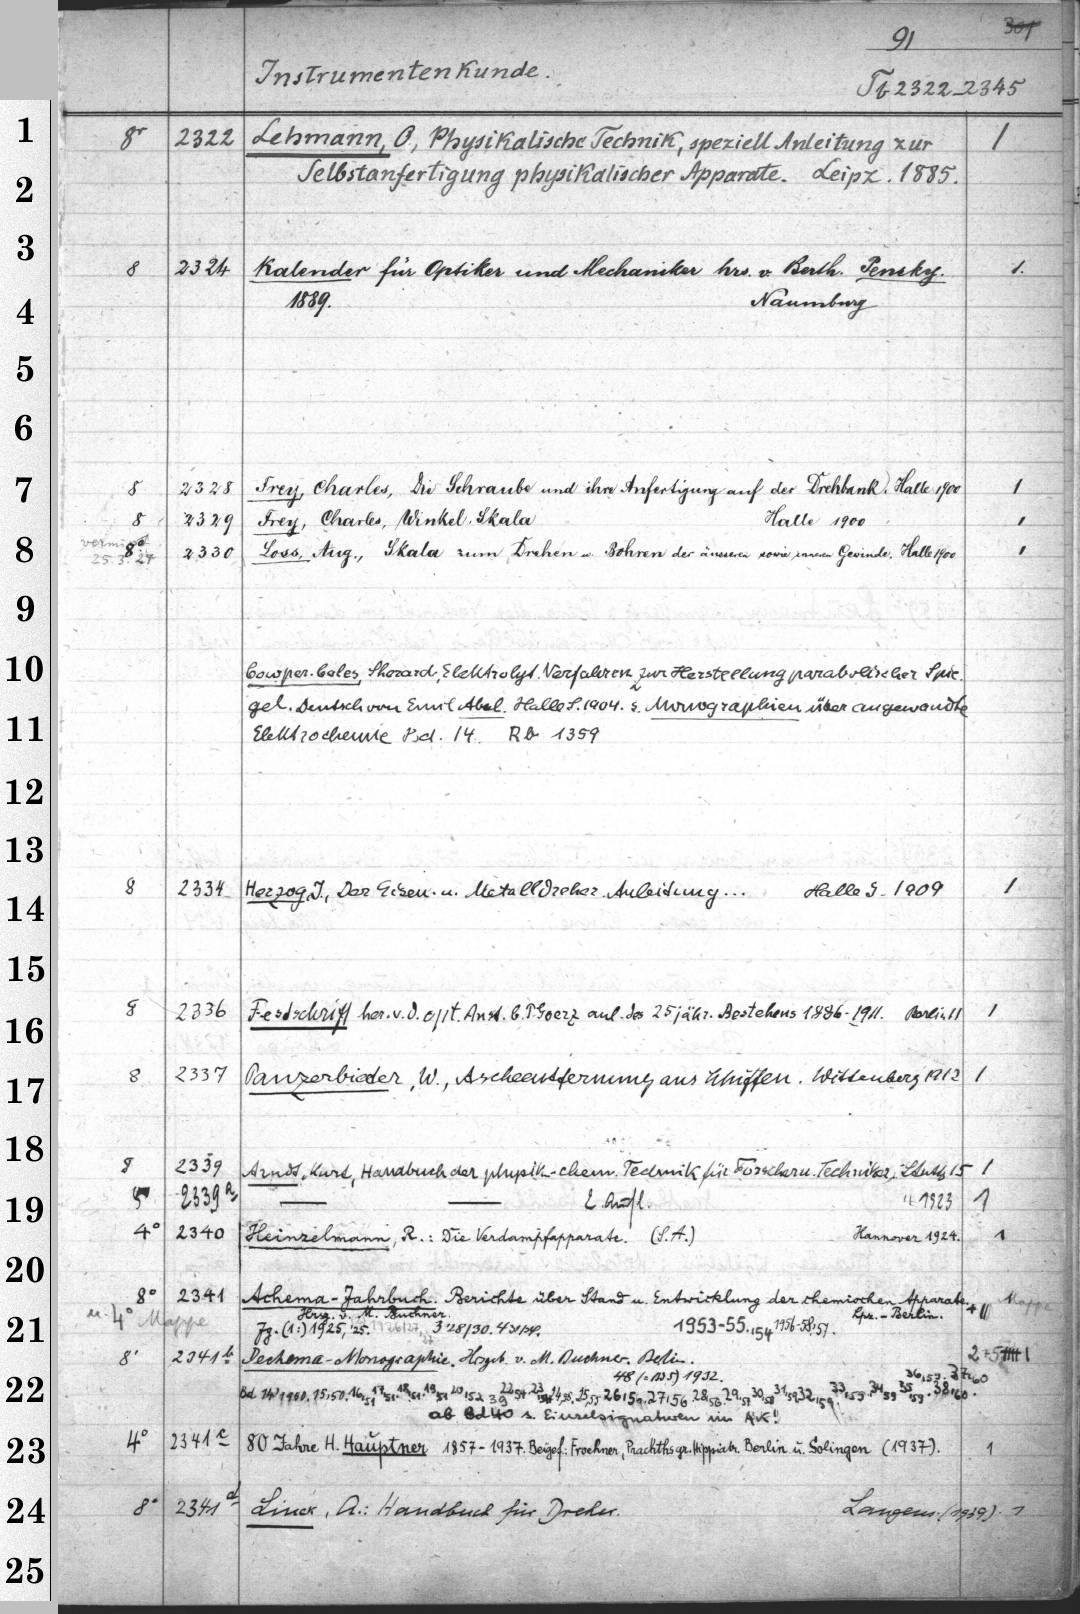 91 301
Instrumentenkunde. Tb 2322-2345
1
8° 2322 Lehmann, O., Physikalische Technik, speziell Anleitung zur 1
2 Selbstanfertigung physikalischer Apparate. Leipz. 1885.
3
8 2324 Kalender für Optiker und Mechaniker hrs. v. Berth. Pensky. 1.
4 1889. Naumburg
5
6
7 8 2328 Frey, Charles, Die Schraube und ihre Anfertigung auf der Drehbank. Halle 1900 1
8 2329 Frey, Charles, Winkel-Skala Halle 1900 1
8 8° 2330 Loss, Aug., Skala zum Drehen u. Bohren der äusseren sowie inneren Gewinde. Halle 1900 1
25.3.27
9
10 Cowper-Coles, Sherard, Elektrolyt. Verfahren zur Herstellung parabolischer Spie-
gel. Deutsch von Emil Abel. Halle S. 1904. s. Monographien über angewandte
11 Elektrochemie Bd. 14. Rb 1359
12
13
14 8 2334 Herzog, J., Der Eisen- u. Metalldreher. Anleitung... Halle S. 1909 1
15
16 8 2336 Festschrift her. v. d. opt. Anst. C. P. Goerz anl. des 25jähr. Bestehens 1886-1911. Berlin 11 1
17 8 2337 Panzerbieter, W., Ascheentfernung aus Schiffen. Wittenberg 1912 1
18
8 2339 Arndt, Kurt, Handbuch der physik.-chem. Technik für Forscher u. Techniker, Stuttg. 15 1
19 2339 a 2. Aufl. " 1923 1
4° 2340 Heinzelmann, R.: Die Verdampfapparate. (S.A.) Hannover 1924. 1
20
8° 2341 Achema-Jahrbuch. Berichte über Stand u. Entwicklung der chemischen Apparate.
u. 4° Mappe Hrsg. v. M. Buchner Lpz.-Berlin. Mappe
21 Jg. (1:) 1925, '25. 1953-55. 1956-58,57.
8° 2341 b Dechema-Monographie. Hrsgb. v. M. Buchner. Berlin.
22 1932.
ab Bd 40 s. Einzelsignaturen im AK!
23 4° 2341 c 80 Jahre H. Hauptner 1857-1937. Beigef.: Froehner, Prachthsgr. Hippiatr. Berlin u. Solingen (1937). 1
24 8° 2341 d Linek, A.: Handbuch für Dreher. Langens. (1939). 1
25